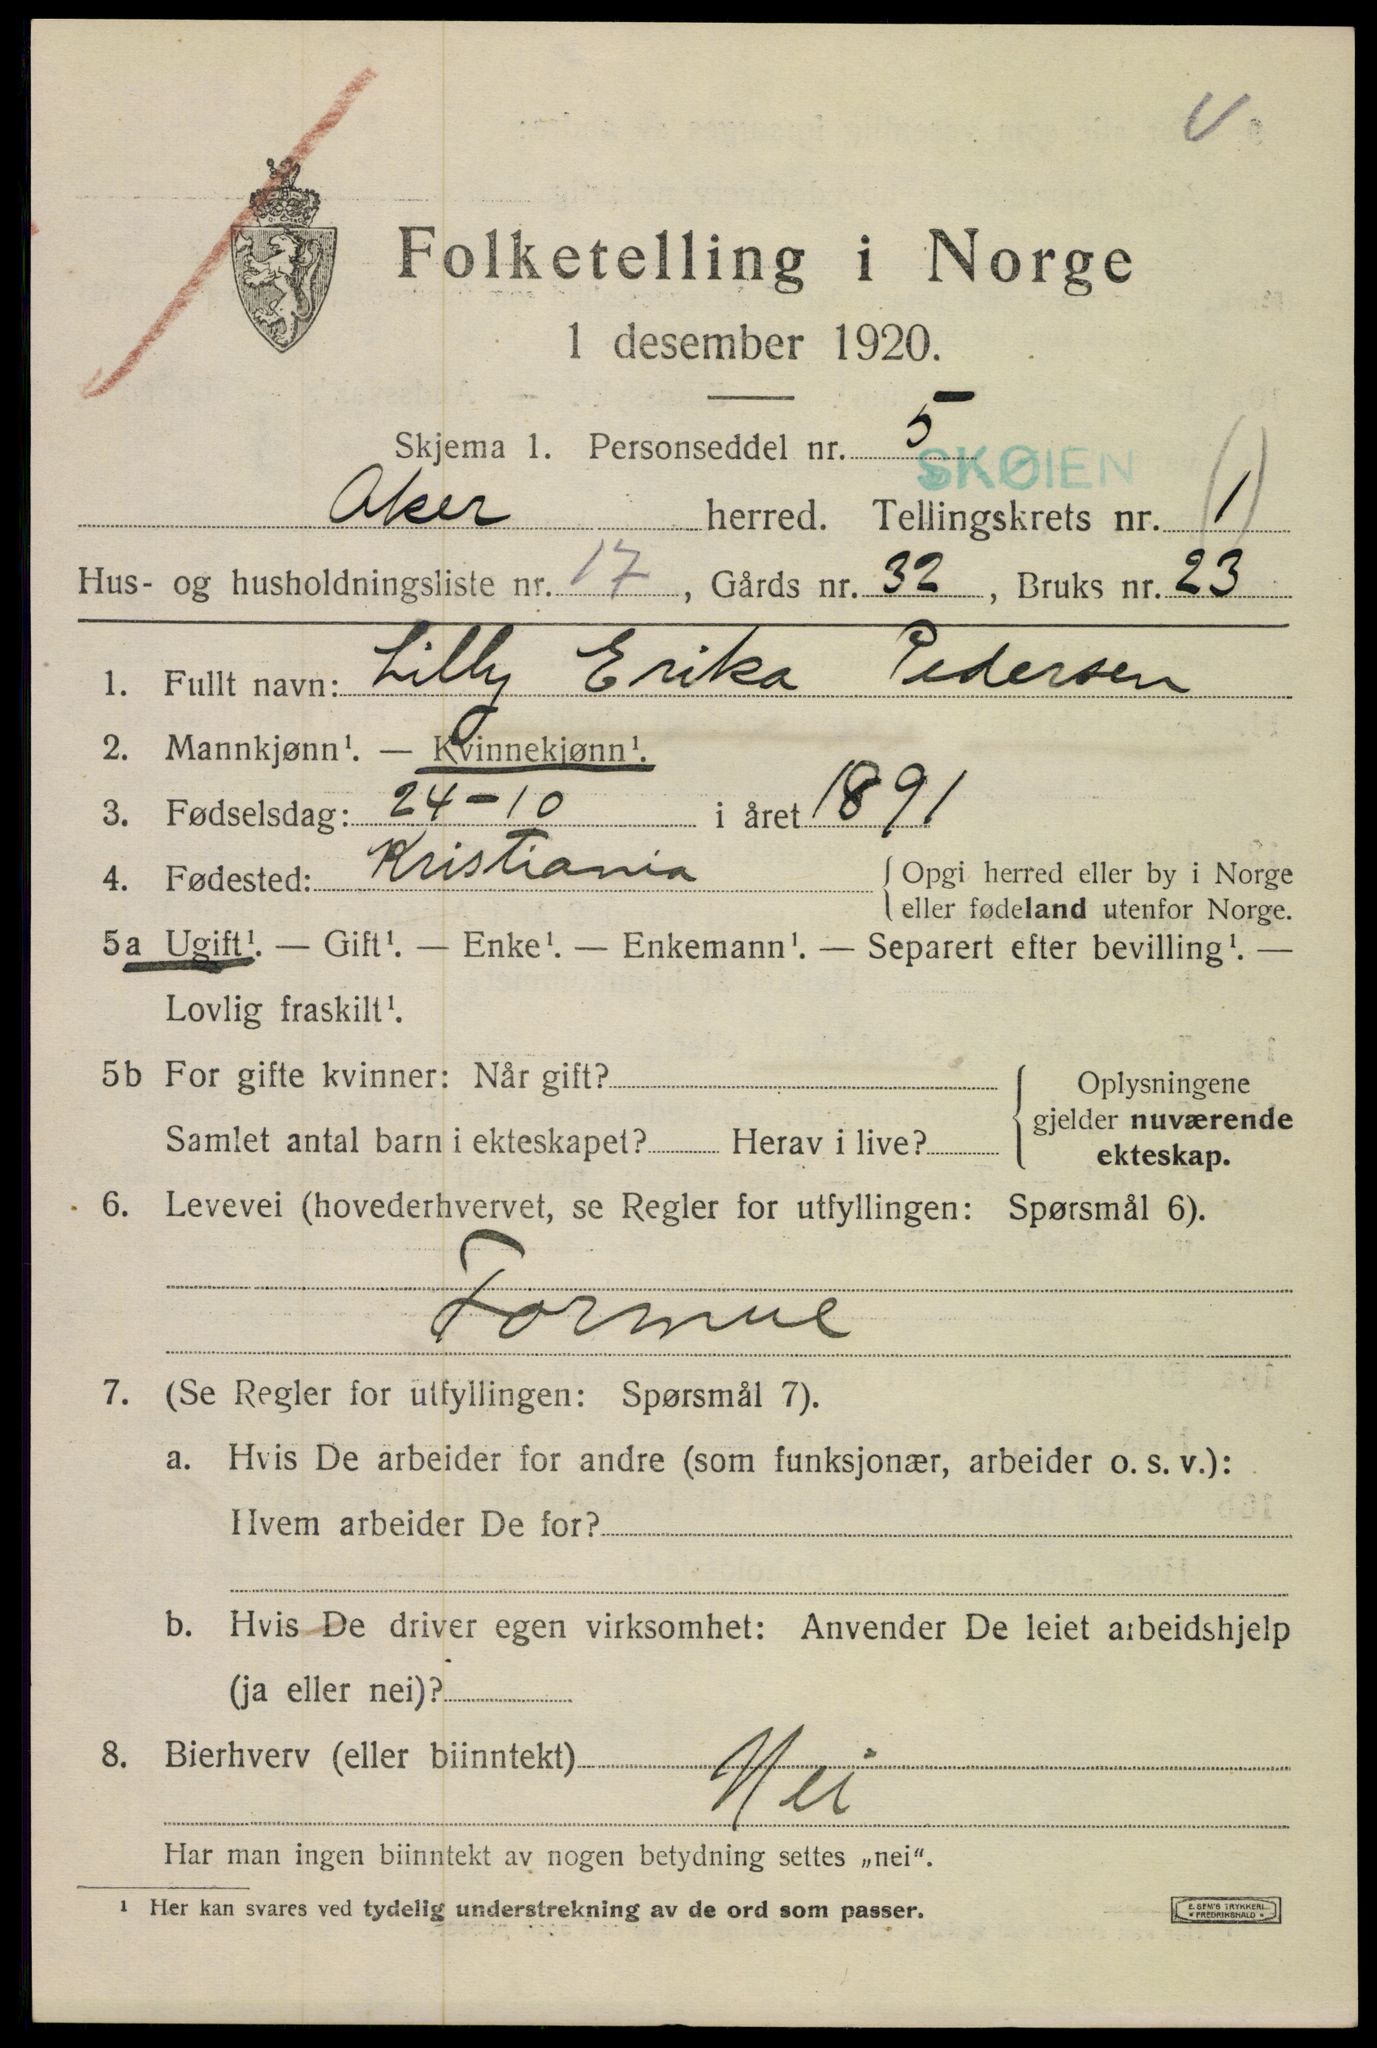 Folketelling i Norge
1 desember 1920.
Skjema 1. Personseddel nr. 5
SKØIEN
Aker herred. Tellingskrets nr. (1)
Hus- og husholdningsliste nr. 17, Gårds nr. 32, Bruks nr. 23
1. Fullt navn: Lilly Erika Pedersen
2. Mannkjønn¹. — Kvinnekjønn¹.
3. Fødselsdag: 24-10 i året 1891
4. Fødested: Kristiania { Opgi herred eller by i Norge
eller fødeland utenfor Norge.
5a Ugift¹. — Gift¹. — Enke¹. — Enkemann¹. — Separert efter bevilling¹. —
Lovlig fraskilt¹.
5b For gifte kvinner: Når gift?
Samlet antal barn i ekteskapet? Herav i live?
Oplysningene
gjelder nuværende
ekteskap.
6. Levevei (hovederhvervet, se Regler for utfyllingen: Spørsmål 6).
Formue
7. (Se Regler for utfyllingen: Spørsmål 7).
a. Hvis De arbeider for andre (som funksjonær, arbeider o. s. v.):
Hvem arbeider De for?
b. Hvis De driver egen virksomhet: Anvender De leiet arbeidshjelp
(ja eller nei)?
8. Bierhverv (eller biinntekt) Nei
Har man ingen biinntekt av nogen betydning settes „nei“.
¹ Her kan svares ved tydelig understrekning av de ord som passer.
E. SEM'S TRYKKERI
FREDRIKSHALD